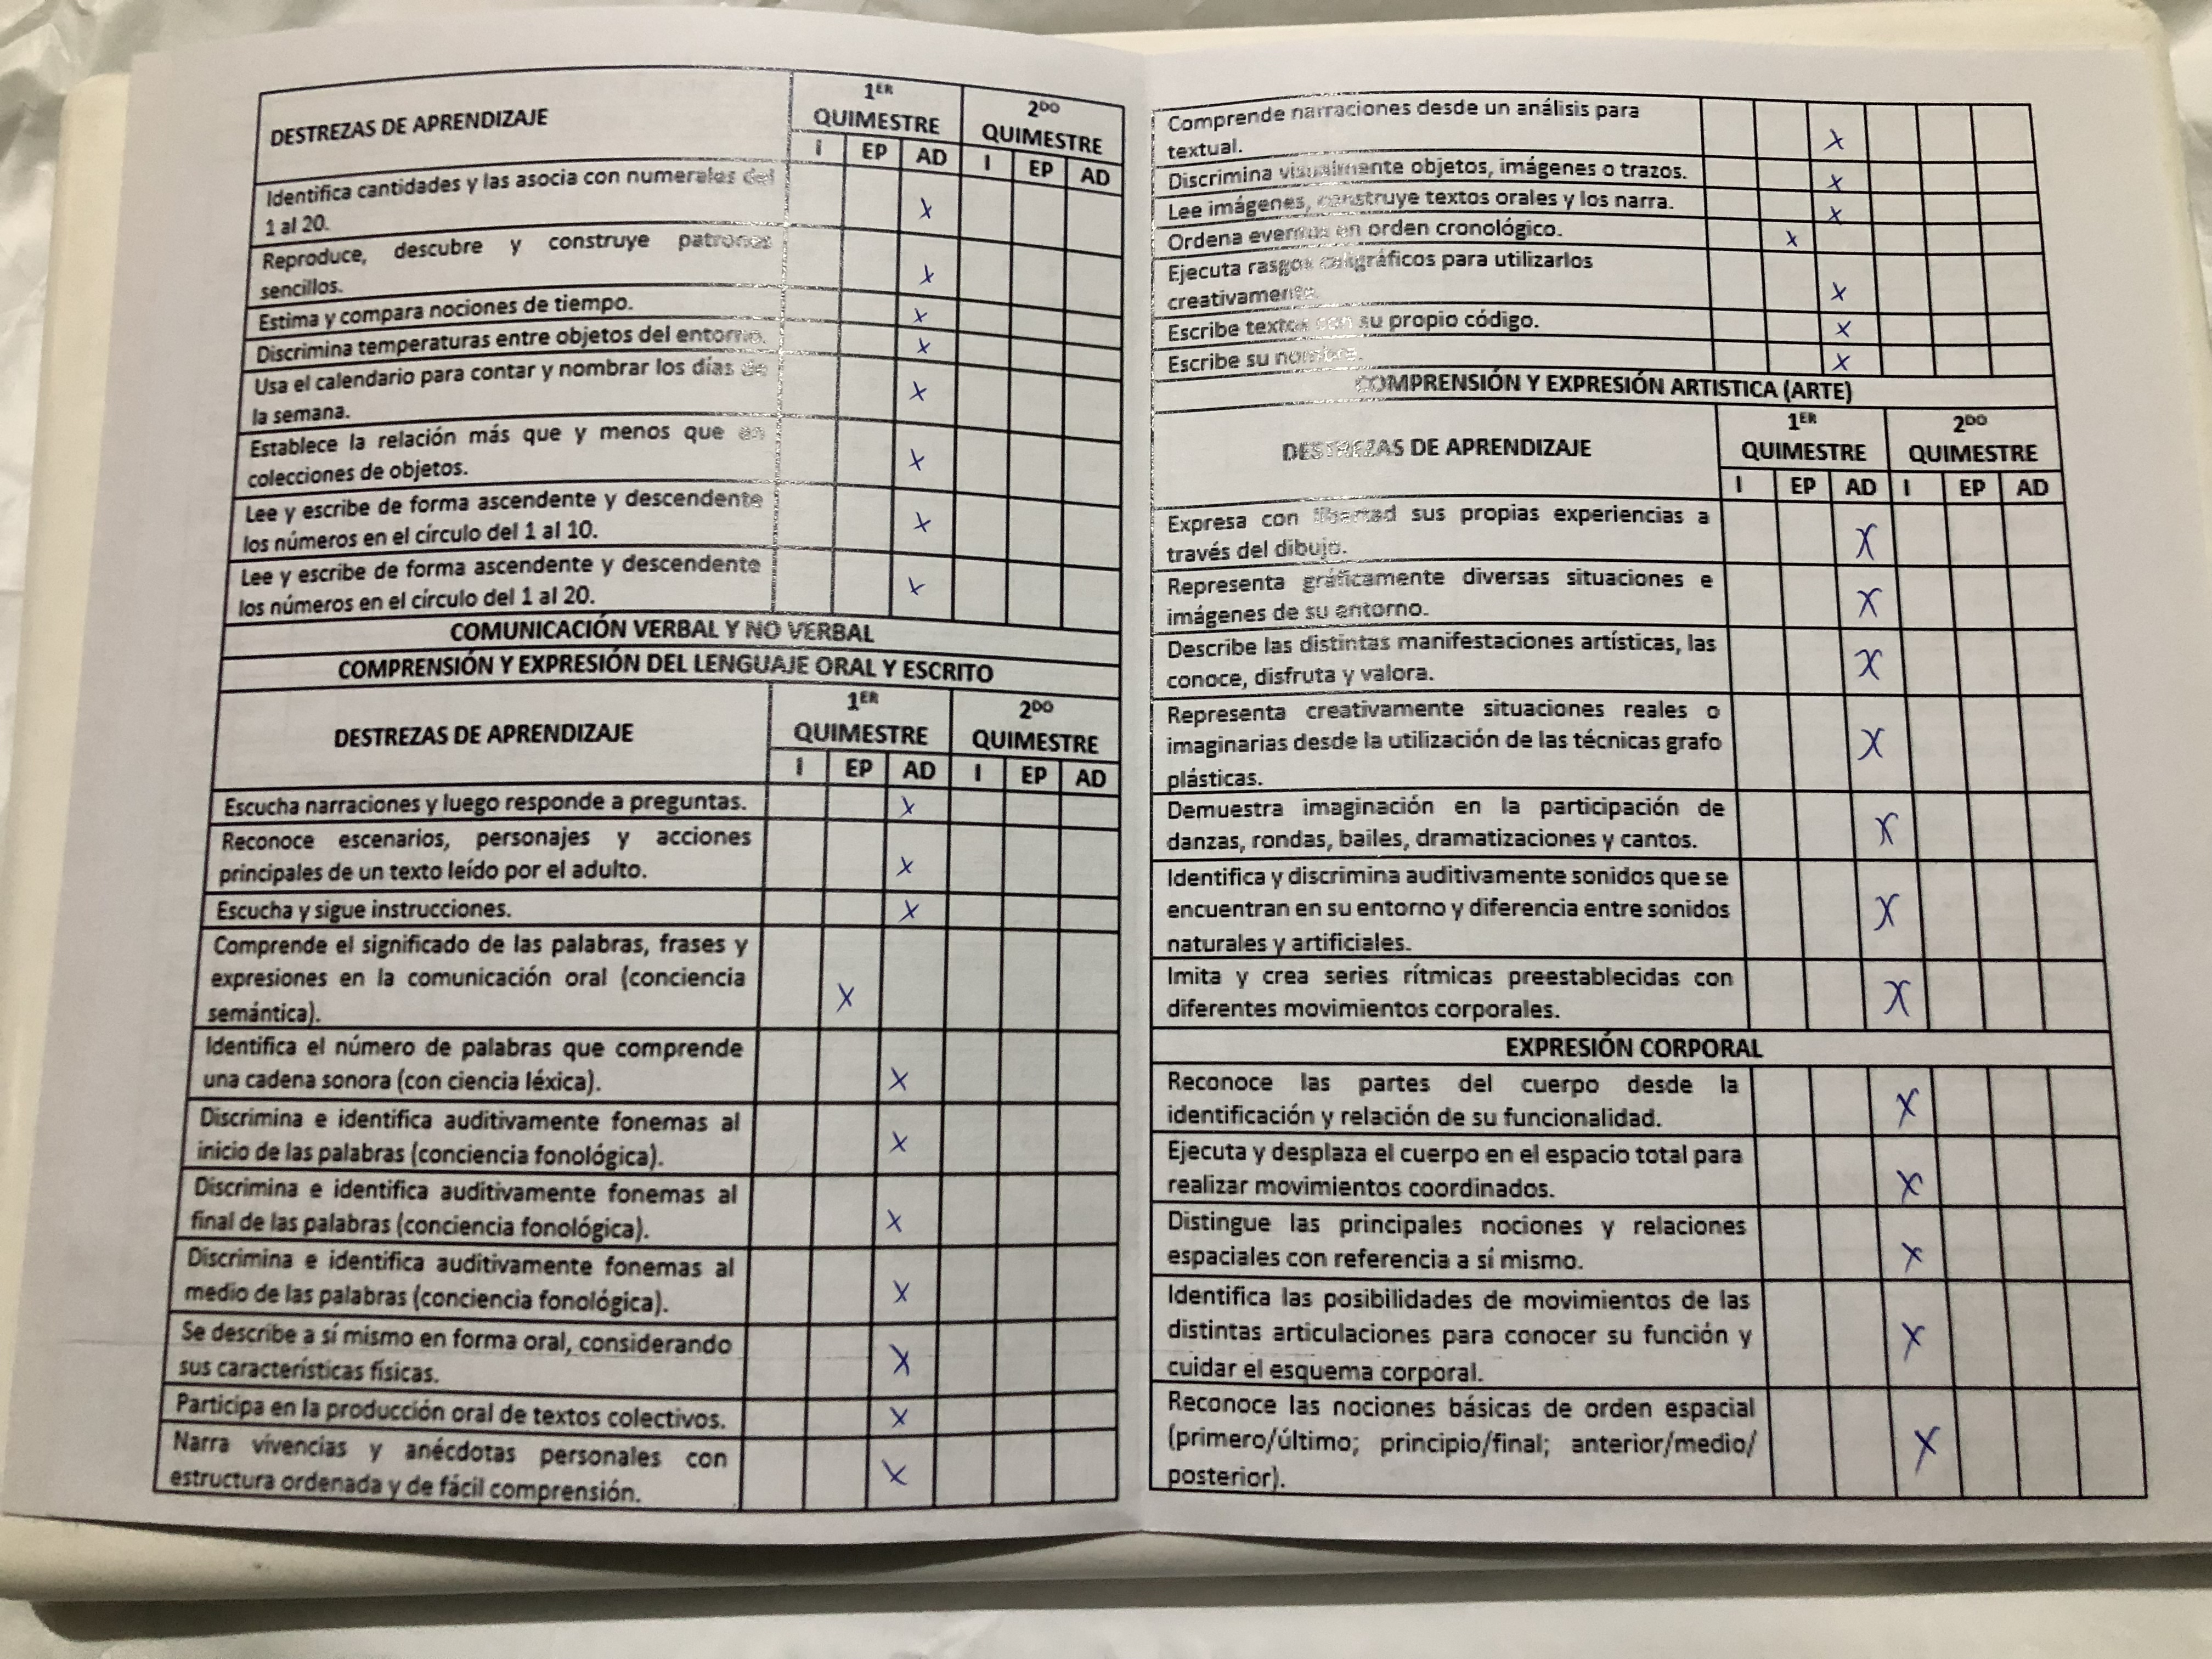 DESTREZAS DE APRENDIZAJE
1ER QUIMESTRE
2DO QUIMESTRE
I EP AD I EP AD
Identifica cantidades y las asocia con numerales del
1 al 20.
X
Reproduce, descubre y construye patrones
sencillos.
X
Estima y compara nociones de tiempo.
X
Discrimina temperaturas entre objetos del entorno.
X
Usa el calendario para contar y nombrar los días de
la semana.
X
Establece la relación más que y menos que en
colecciones de objetos.
X
Lee y escribe de forma ascendente y descendente
los números en el círculo del 1 al 10.
X
Lee y escribe de forma ascendente y descendente
los números en el círculo del 1 al 20.
X
COMUNICACIÓN VERBAL Y NO VERBAL
COMPRENSIÓN Y EXPRESIÓN DEL LENGUAJE ORAL Y ESCRITO
DESTREZAS DE APRENDIZAJE
1ER QUIMESTRE
2DO QUIMESTRE
I EP AD I EP AD
Escucha narraciones y luego responde a preguntas.
X
Reconoce escenarios, personajes y acciones
principales de un texto leído por el adulto.
X
Escucha y sigue instrucciones.
X
Comprende el significado de las palabras, frases y
expresiones en la comunicación oral (conciencia
semántica).
X
Identifica el número de palabras que comprende
una cadena sonora (con ciencia léxica).
X
Discrimina e identifica auditivamente fonemas al
inicio de las palabras (conciencia fonológica).
X
Discrimina e identifica auditivamente fonemas al
final de las palabras (conciencia fonológica).
X
Discrimina e identifica auditivamente fonemas al
medio de las palabras (conciencia fonológica).
X
Se describe a sí mismo en forma oral, considerando
sus características físicas.
X
Participa en la producción oral de textos colectivos.
X
Narra vivencias y anécdotas personales con
estructura ordenada y de fácil comprensión.
X
Comprende narraciones desde un análisis para
textual.
X
Discrimina visualmente objetos, imágenes o trazos.
X
Lee imágenes, construye textos orales y los narra.
X
Ordena eventos en orden cronológico.
X
Ejecuta rasgos caligráficos para utilizarlos
creativamente.
X
Escribe textos con su propio código.
X
Escribe su nombre.
X
COMPRENSIÓN Y EXPRESIÓN ARTISTICA (ARTE)
DESTREZAS DE APRENDIZAJE
1ER QUIMESTRE
2DO QUIMESTRE
I EP AD I EP AD
Expresa con libertad sus propias experiencias a
través del dibujo.
X
Representa gráficamente diversas situaciones e
imágenes de su entorno.
X
Describe las distintas manifestaciones artísticas, las
conoce, disfruta y valora.
X
Representa creativamente situaciones reales o
imaginarias desde la utilización de las técnicas grafo
plásticas.
X
Demuestra imaginación en la participación de
danzas, rondas, bailes, dramatizaciones y cantos.
X
Identifica y discrimina auditivamente sonidos que se
encuentran en su entorno y diferencia entre sonidos
naturales y artificiales.
X
Imita y crea series rítmicas preestablecidas con
diferentes movimientos corporales.
X
EXPRESIÓN CORPORAL
Reconoce las partes del cuerpo desde la
identificación y relación de su funcionalidad.
X
Ejecuta y desplaza el cuerpo en el espacio total para
realizar movimientos coordinados.
X
Distingue las principales nociones y relaciones
espaciales con referencia a sí mismo.
X
Identifica las posibilidades de movimientos de las
distintas articulaciones para conocer su función y
cuidar el esquema corporal.
X
Reconoce las nociones básicas de orden espacial
(primero/último; principio/final; anterior/medio/
posterior).
X